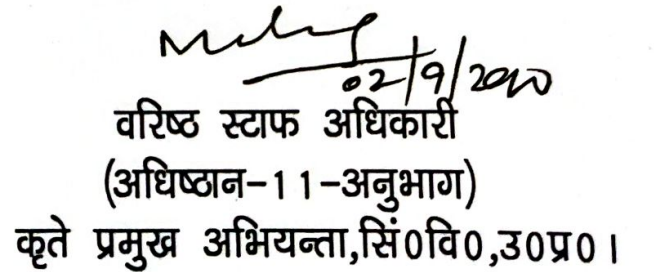 02/9/2020
वरिष्ठ स्टाफ अधिकारी
(अधिष्ठान-11-अनुभाग)
कृते प्रमुख अभियन्ता,सिं0वि0,उ0प्र0।